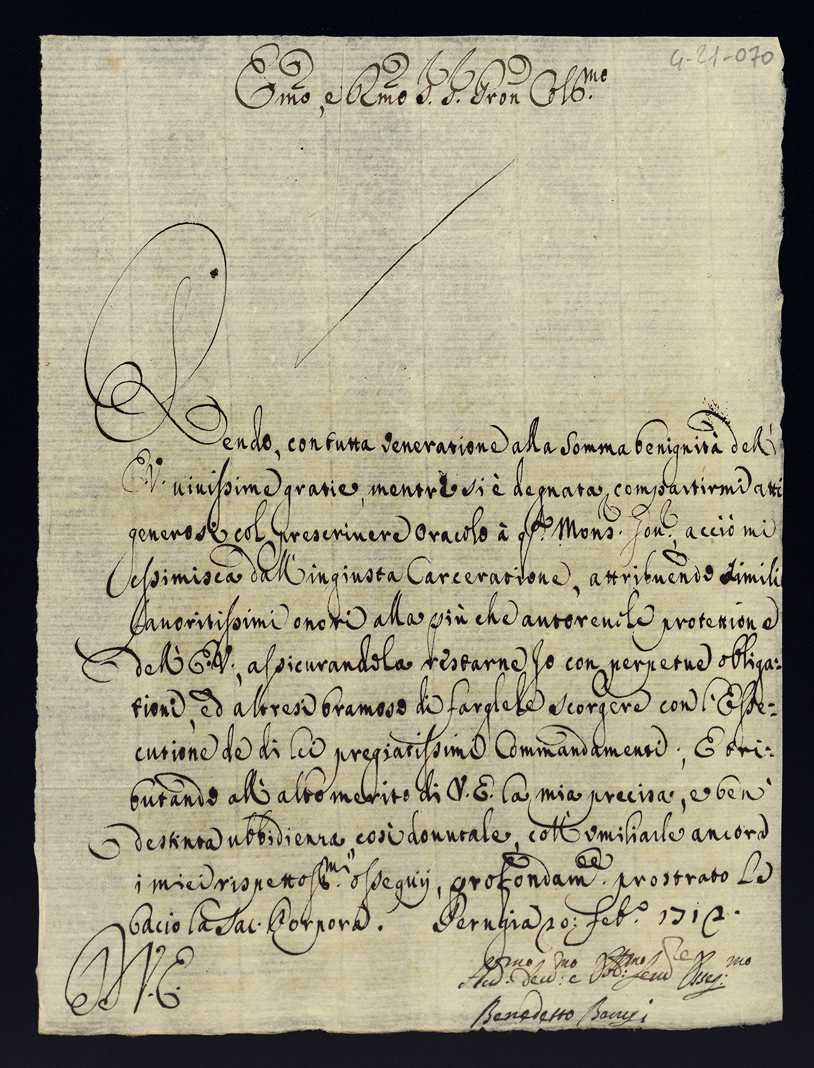 4-21-070
Emo, e Rmo S. S. Pron Colb.mo
Rendo, con tutta veneratione alla somma benignità dell'
E.V. vivissime gratie, mentre si è degnata compartirmi atti
generosi col prescrivere oracolo à Mons.
esimisca dall'ingiusta Carceratione, attribuendo simili
favoritissimi onori alla più che autorevole protettione
dell' E.V., assicurandola restarne Io con perpetue obliga-
tioni, ed altresi bramoso di fargliele scorgere con l'Esse-
cutione de di lei pregiatissimi Commandamenti; E tri-
butando all'alto merito di V.E. la mia precisa, e ben
destinta ubbidienza così dovutale, coll'umiliarle ancora
i miei rispettoss.mi ossequij, profondam.e prostrato Le
bacio la Sac. Porpora. Perugia 20: Feb.o 1712.
D V.E.
Devmo e Obbmo Serv.e Osseq.mo
Benedetto